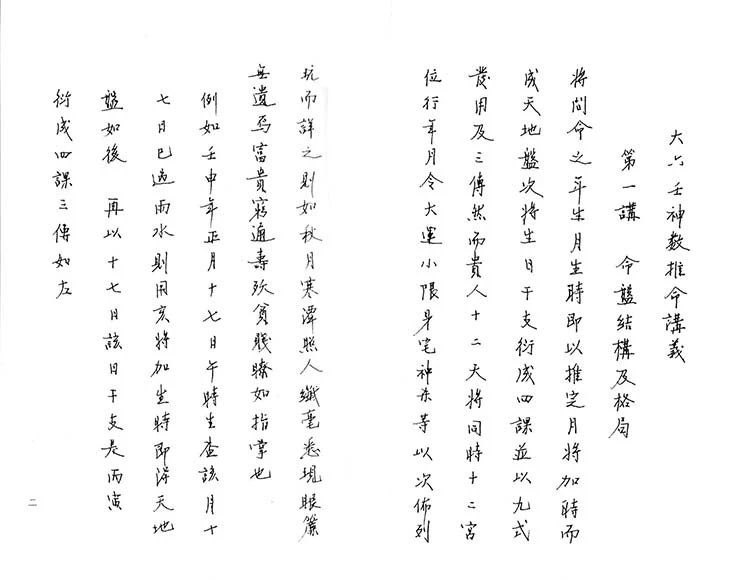 大六壬神數推命講義
第一講　命盤結構及格局
將問命之年生月生時即以推定月將加時而
成天地盤次將生日干支衍成四課並以九式
發用及三傳然而貴人十二天將同時十二宮
位行年月令大運小限身宅神煞等以次佈列
玩而詳之則如秋月寒潭照人纖毫悉現眼簾
無遺焉富貴窮通壽殀貧賤瞭如指掌也
例如壬申年正月十七日午時生查該月十
七日已過雨水則用亥將加生時即得天地
盤如後　再以十七日該日干支是丙寅
衍成四課三傳如左
二